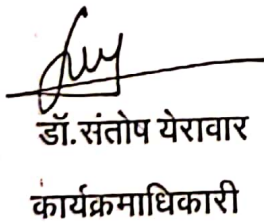 डॉ.संतोष येरावार
कार्यक्रमाधिकारी